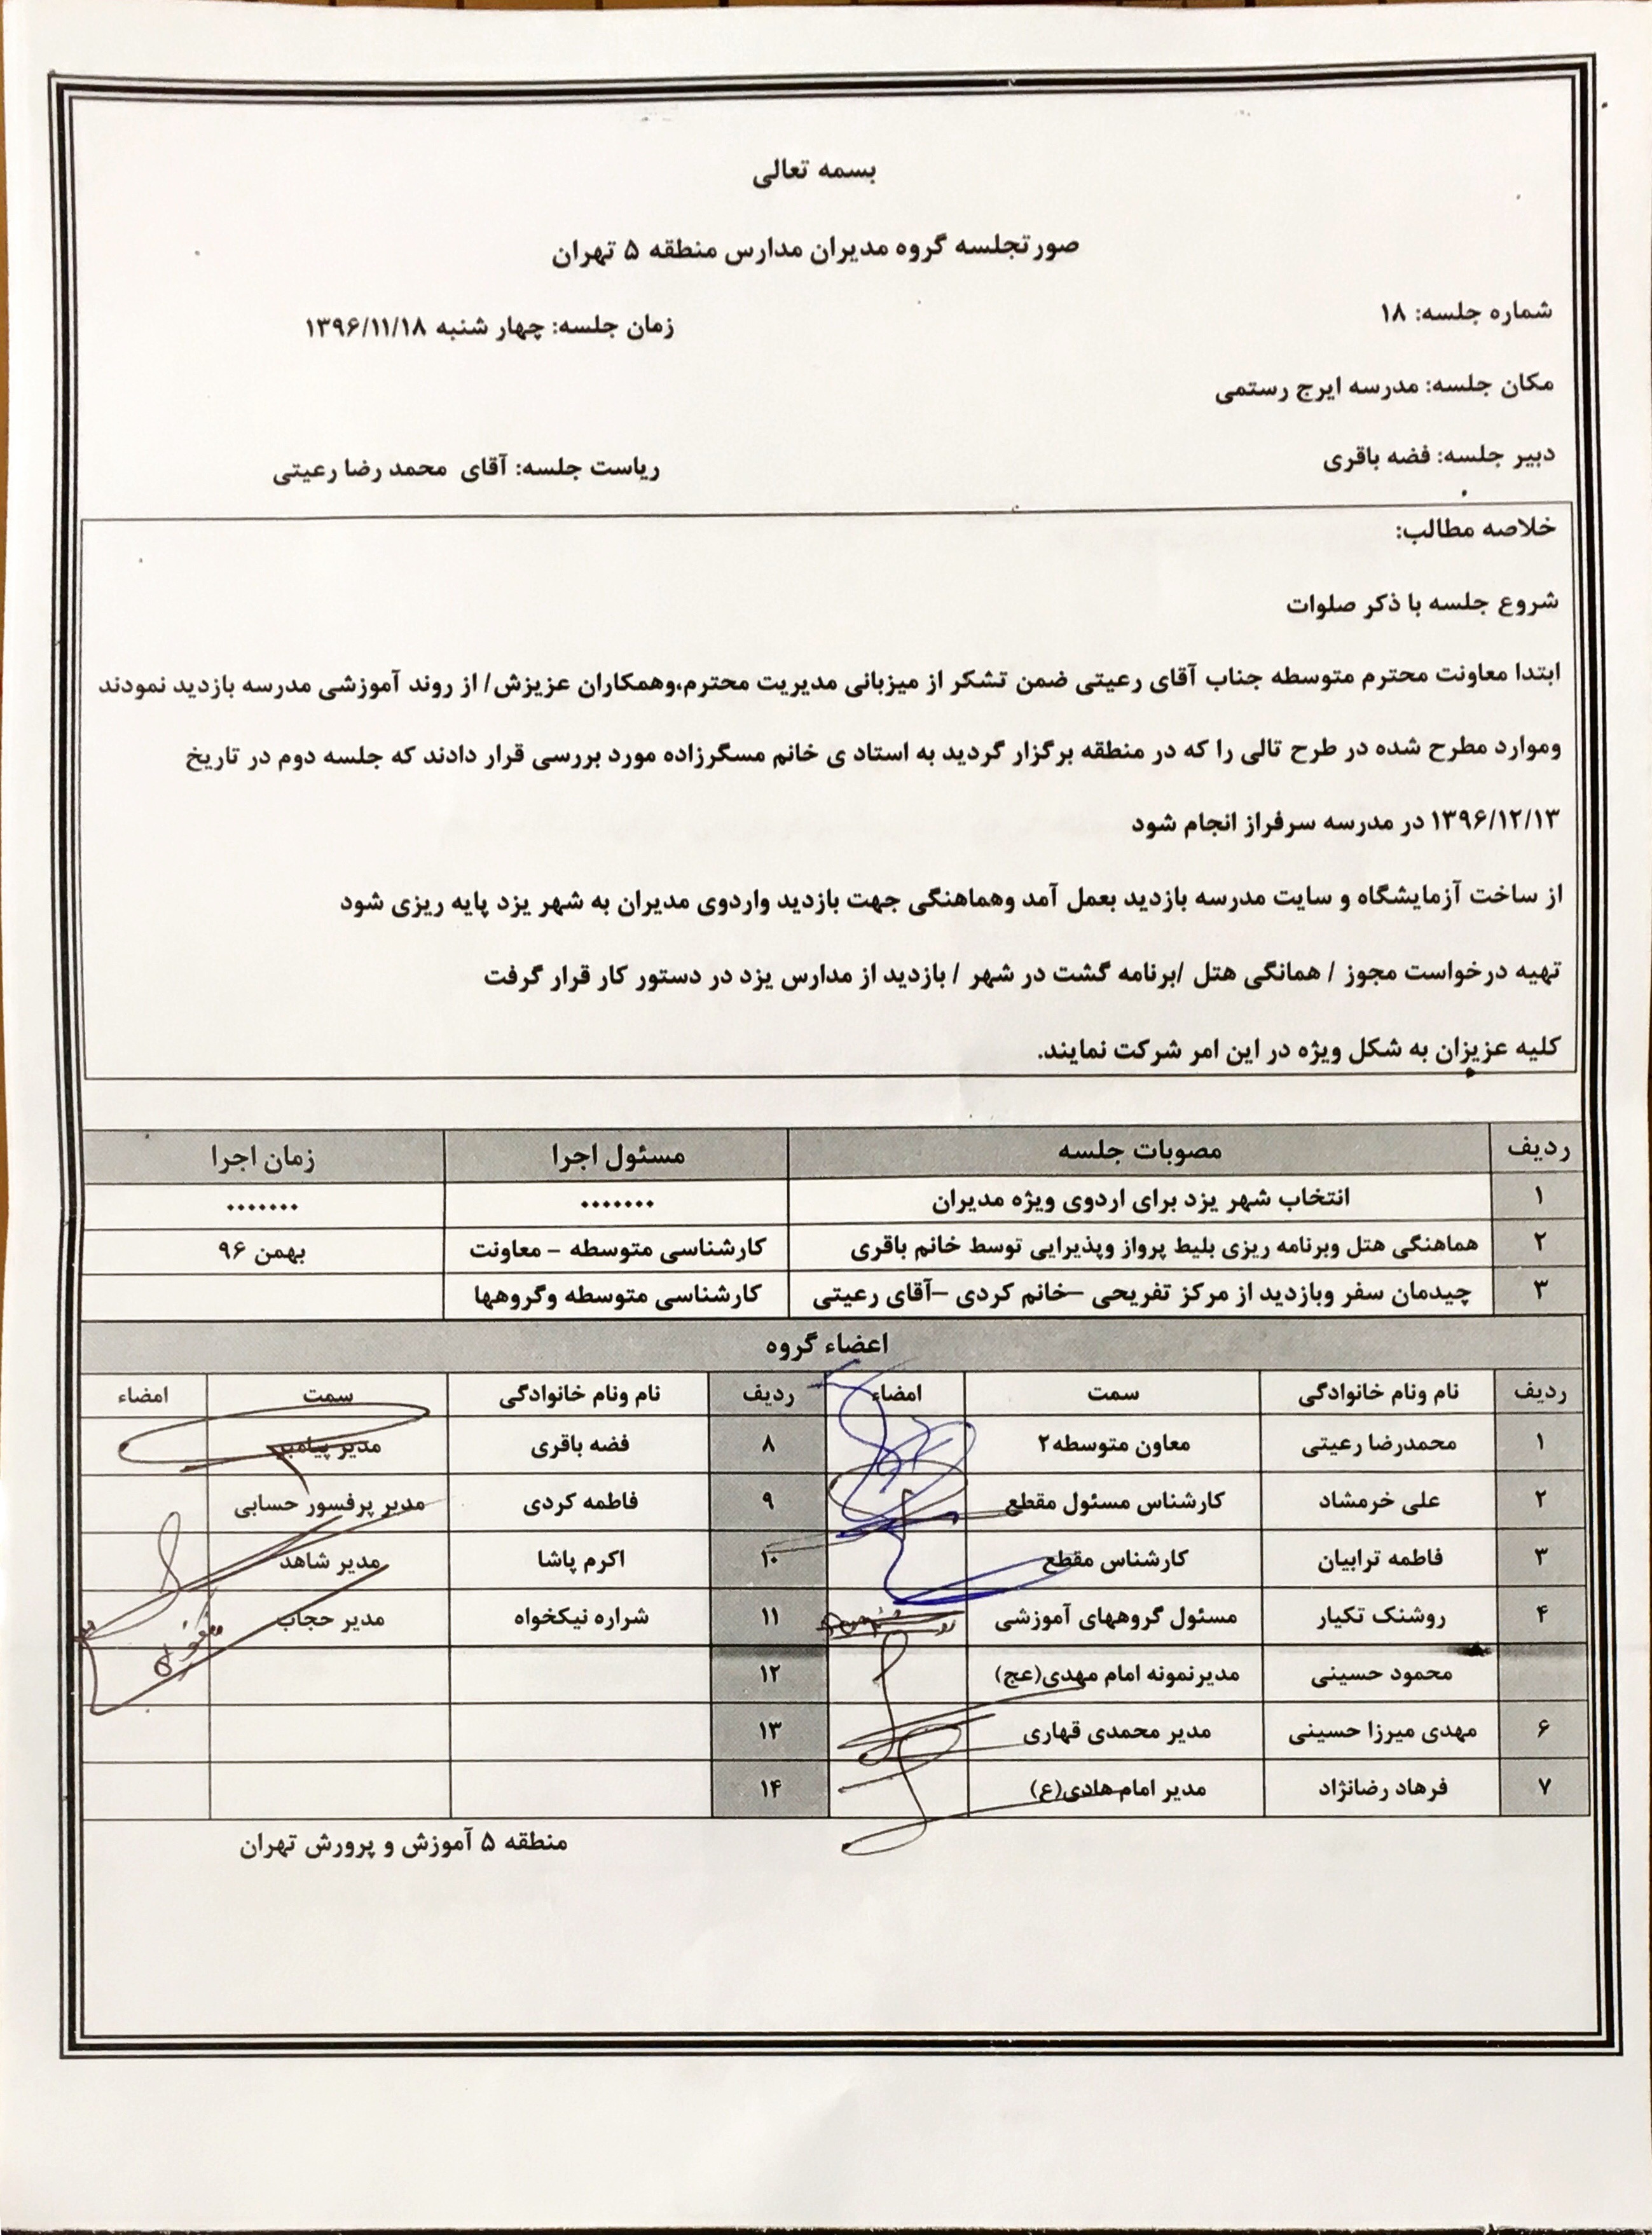 بسمه تعالی
صورتجلسه گروه مدیران مدارس منطقه ۵ تهران
شماره جلسه: ۱۸ زمان جلسه: چهار شنبه ۱۳۹۶/۱۱/۱۸
مکان جلسه: مدرسه ایرج رستمی
دبیر جلسه: فضه باقری ریاست جلسه: آقای محمد رضا رعیتی
خلاصه مطالب:
شروع جلسه با ذکر صلوات
ابتدا معاونت محترم متوسطه جناب آقای رعیتی ضمن تشکر از میزبانی مدیریت محترم،وهمکاران عزیزش/ از روند آموزشی مدرسه بازدید نمودند
وموارد مطرح شده در طرح تالی را که در منطقه برگزار گردید به استاد ی خانم مسگرزاده مورد بررسی قرار دادند که جلسه دوم در تاریخ
۱۳۹۶/۱۲/۱۳ در مدرسه سرفراز انجام شود
از ساخت آزمایشگاه و سایت مدرسه بازدید بعمل آمد وهماهنگی جهت بازدید واردوی مدیران به شهر یزد پایه ریزی شود
تهیه درخواست مجوز / همانگی هتل /برنامه گشت در شهر / بازدید از مدارس یزد در دستور کار قرار گرفت
کلیه عزیزان به شکل ویژه در این امر شرکت نمایند.
ردیف مصوبات جلسه مسئول اجرا زمان اجرا
۱ انتخاب شهر یزد برای اردوی ویژه مدیران ....... .......
۲ هماهنگی هتل وبرنامه ریزی بلیط پرواز وپذیرایی توسط خانم باقری کارشناسی متوسطه – معاونت بهمن ۹۶
۳ چیدمان سفر وبازدید از مرکز تفریحی –خانم کردی –آقای رعیتی کارشناسی متوسطه وگروهها
اعضاء گروه
ردیف نام ونام خانوادگی سمت امضاء ردیف نام ونام خانوادگی سمت امضاء
۱ محمدرضا رعیتی معاون متوسطه۲ ۸ فضه باقری مدیر پیامبر
۲ علی خرمشاد کارشناس مسئول مقطع ۹ فاطمه کردی مدیر پرفسور حسابی
۳ فاطمه ترابیان کارشناس مقطع ۱۰ اکرم پاشا مدیر شاهد
۴ روشنک تکیار مسئول گروههای آموزشی ۱۱ شراره نیکخواه مدیر حجاب
محمود حسینی مدیرنمونه امام مهدی(عج) ۱۲
۶ مهدی میرزا حسینی مدیر محمدی قهاری ۱۳
۷ فرهاد رضانژاد مدیر امام هادی(ع) ۱۴
منطقه ۵ آموزش و پرورش تهران